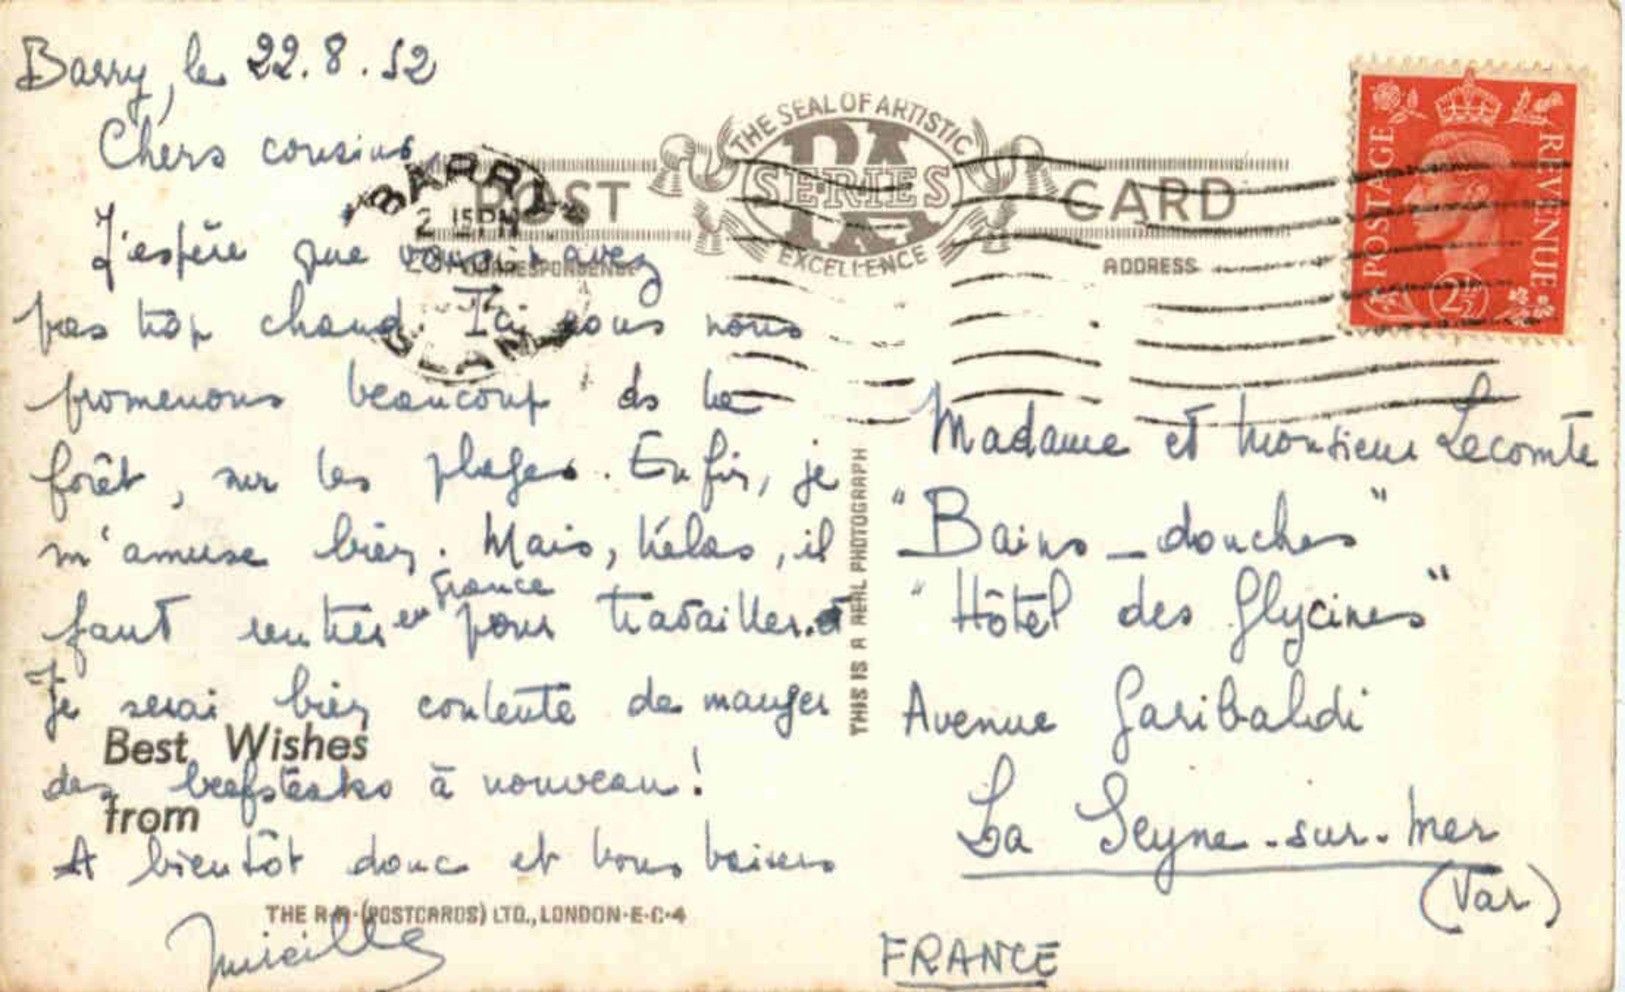 Barry, le 22.8.52
Chers cousins,
J'espère que vous n'avez
pas trop chaud. Ici nous nous
promenons beaucoup ds la
forêt, sur les plages. Enfin, je
m'amuse bien. Mais, hélas, il
faut rentrer en France pour travailler. et
Je serai bien contente de manger
des beefsteaks à nouveau!
A bientôt donc et bons baisers
Mireille
Best Wishes
from
THE R.A. (POSTCARDS) LTD., LONDON·E·C·4
POST CARD
THE SEAL OF ARTISTIC
RA
SERIES
EXCELLENCE
CORRESPONDENCE
ADDRESS
BARRY
2 15 PM
GLAM
THIS IS A REAL PHOTOGRAPH
POSTAGE
REVENUE
2½
Madame et Monsieur Lecomte
"Bains-douches"
"Hôtel des Glycines"
Avenue Garibaldi
La Seyne-sur-Mer
(Var)
FRANCE